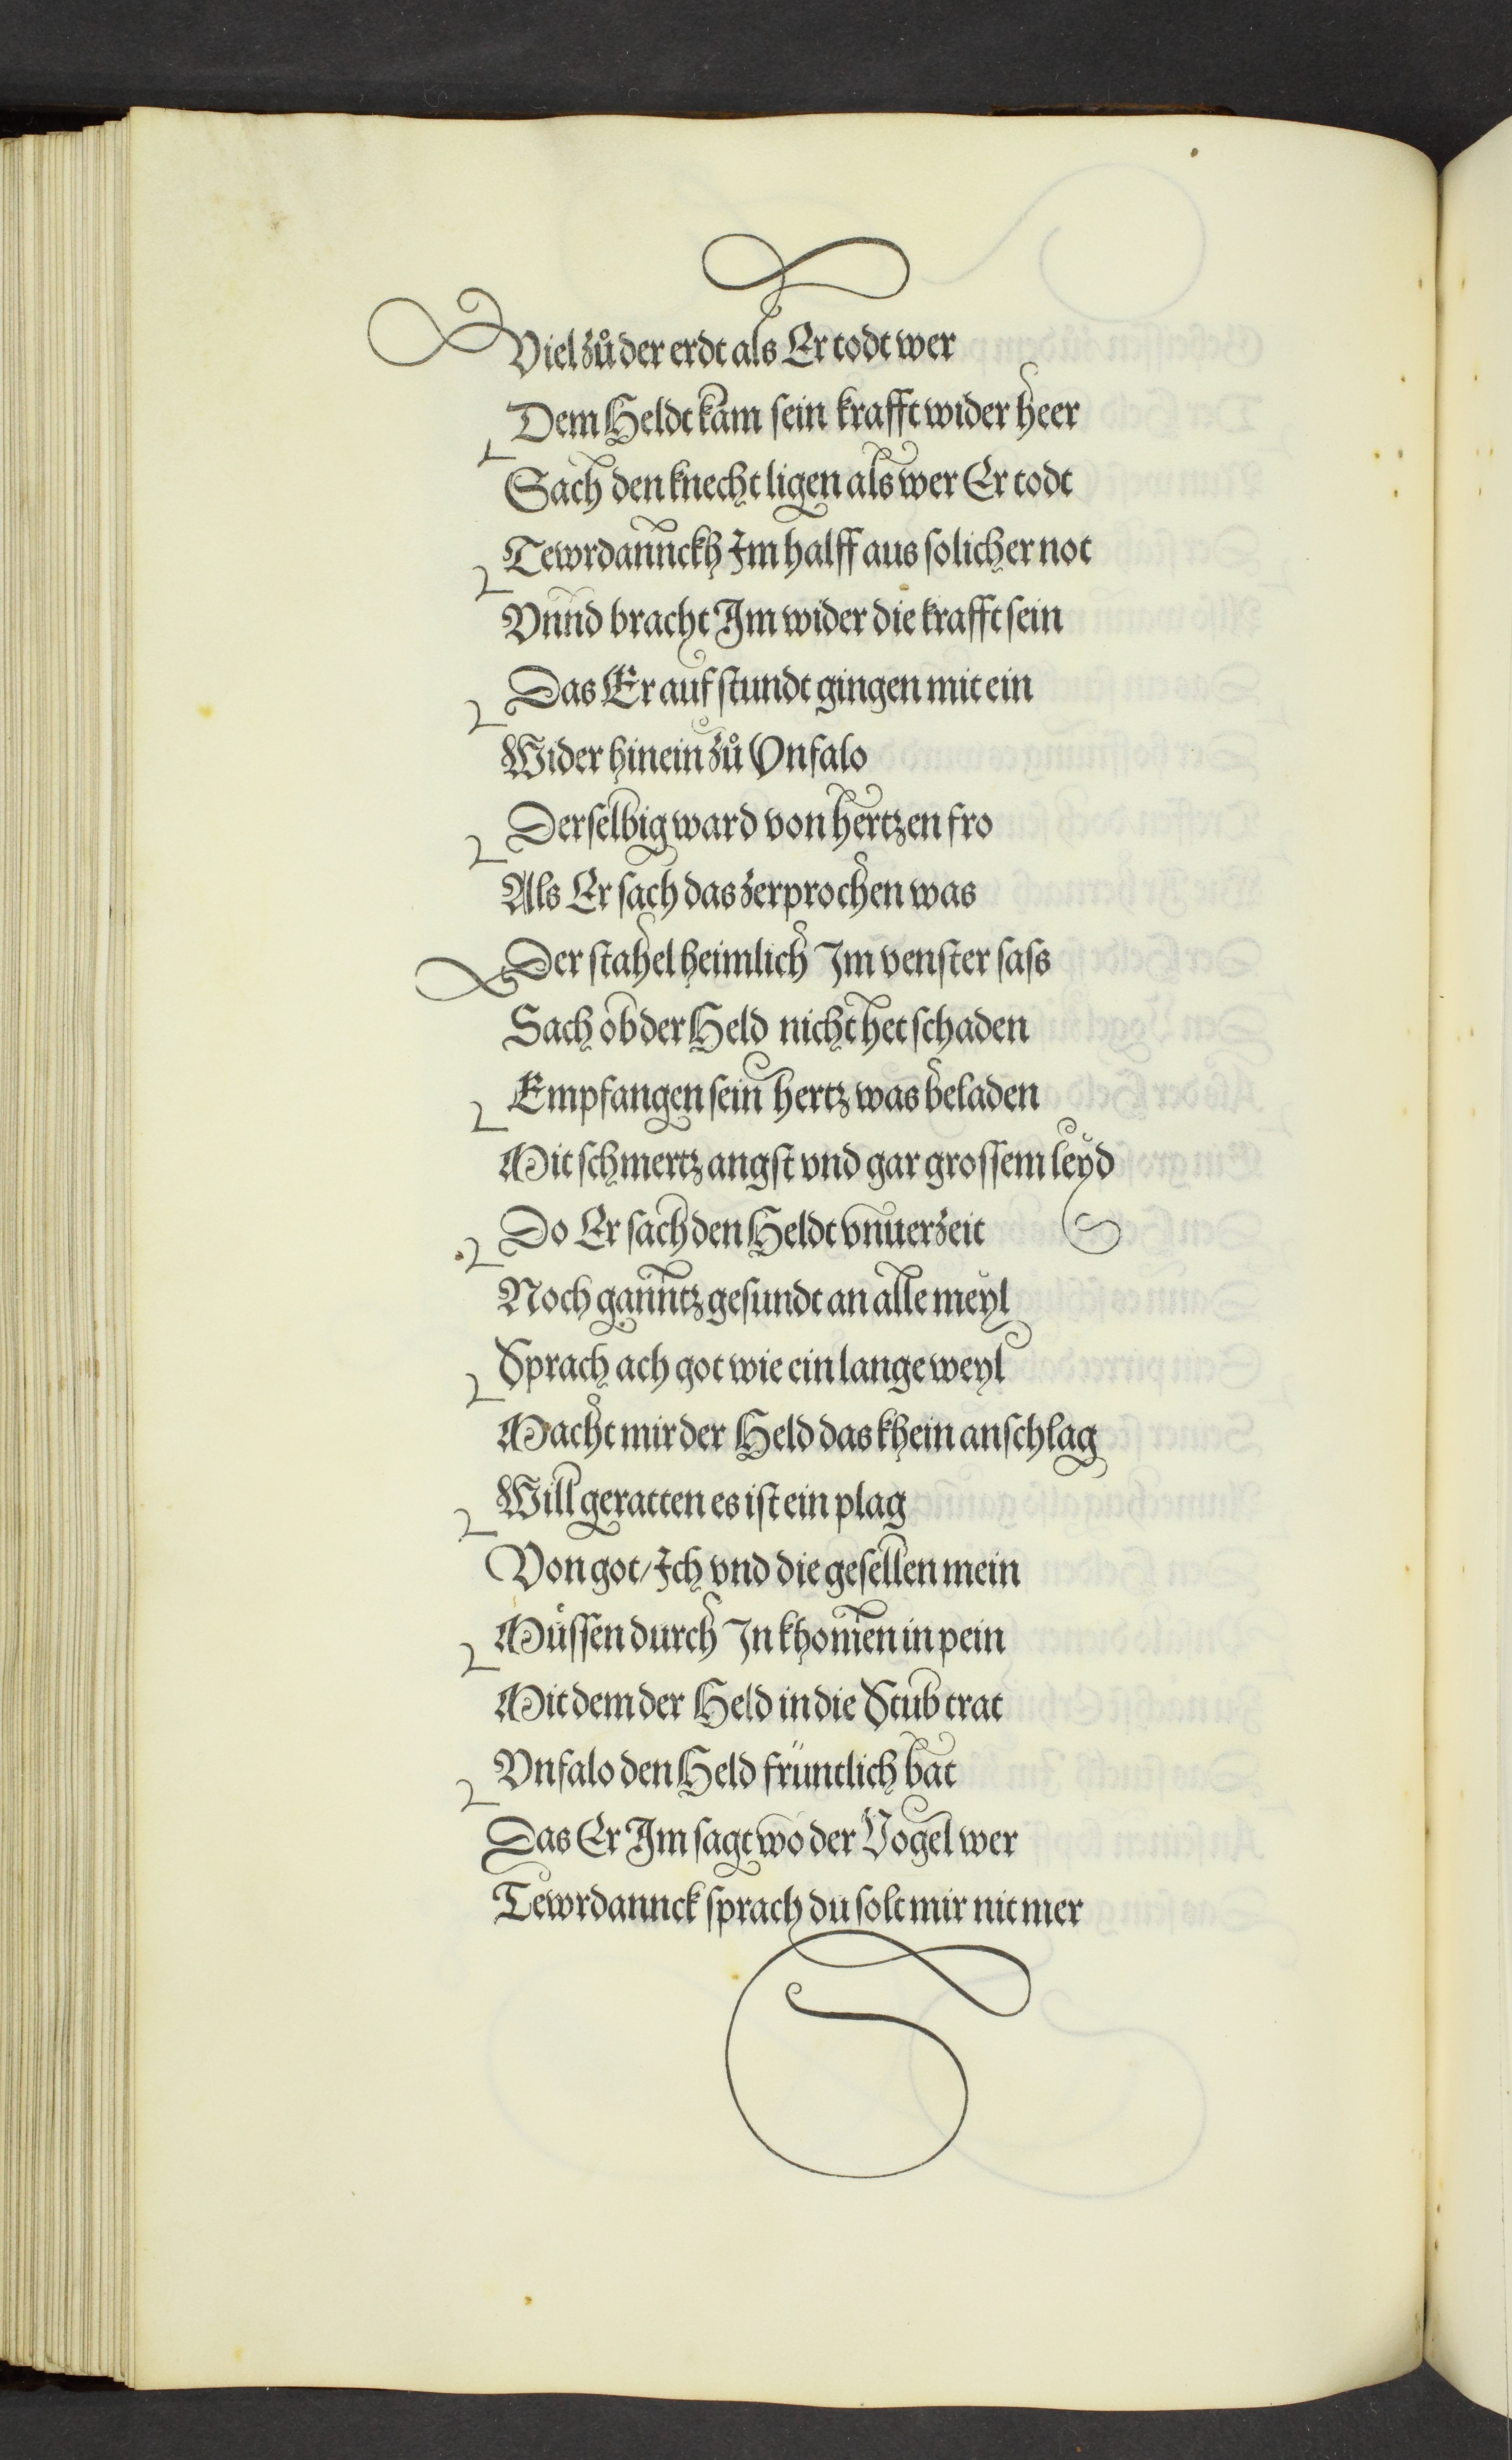 Viel zů der erdt als Er todt wer
Dem Heldt kam sein krafft wider heer
Sach den knecht ligen als wer Er todt
Tewrdannckh Im halff aus solicher not
Vnnd bracht Im wider die krafft sein
Das Er auf stundt gingen mit ein
Wider hinein zů Vnfalo
Derselbig ward von hertzen fro
Als Er sach das zerprochen was
Der stahel heimlich Im venster sass
Sach ob der Held nicht het schaden
Empfangen sein hertz was beladen
Mit schmertz angst vnd gar grossem leyd
Do Er sach den Heldt vnuerzeit
Noch ganntz gesundt an alle meyl
Sprach ach got wie ein lange weyl
Macht mir der Held das khein anschlag
Will geratten es ist ein plag
Von got/ Ich vnd die gesellen mein
Müssen durch In khomen in pein
Mit dem der Held in die Stub trat
Vnfalo den Held früntlich bat
Das Er Im sagt wo der Vogel wer
Tewrdannck sprach du solt mir nit mer